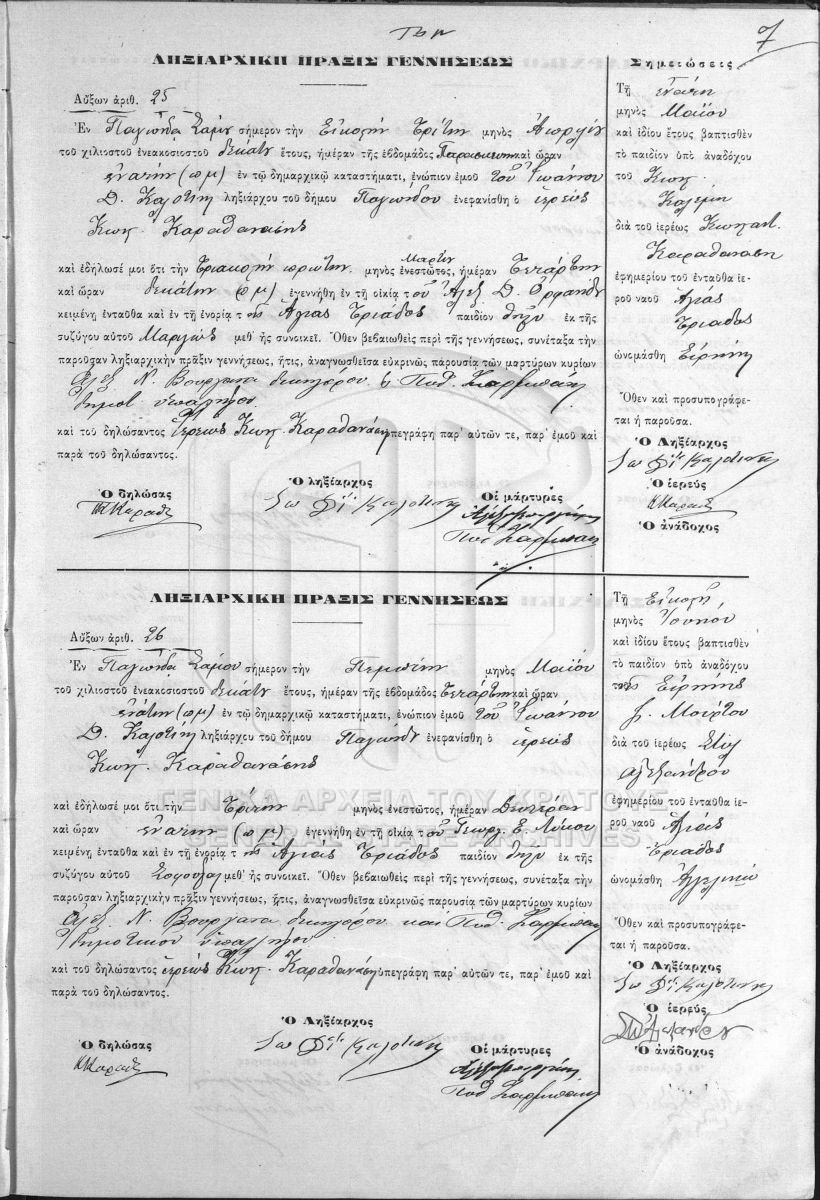 7
ΛΗΞΙΑΡΧΙΚΗ ΠΡΑΞΙΣ ΓΕΝΝΗΣΕΩΣ
Αὔξων ἀριθ. 25
Ἐν Παγώνδᾳ Σάμου σήμερον τὴν Εἰκοστὴν Τρίτην μηνὸς Ἀπριλίου
τοῦ χιλιοστοῦ ἐνεακοσιοστοῦ δεκάτου ἔτους, ἡμέραν τῆς ἑβδομάδος Παρασκευὴν καὶ ὥραν
ἐνάτην (π μ) ἐν τῷ δημαρχικῷ καταστήματι, ἐνώπιον ἐμοῦ τοῦ Ἰωάννου
Δ. ληξιάρχου τοῦ δήμου Παγώνδου ἐνεφανίσθη ὁ ἱερεὺς
Κωνστ. Καραθανάσης
καὶ ἐδήλωσέ μοι ὅτι τὴν Τριακοστὴν πρώτην μηνὸς Μαρτίου ἐνεστῶτος, ἡμέραν Τετάρτην
καὶ ὥραν δεκάτην (π μ) ἐγεννήθη ἐν τῇ οἰκίᾳ τοῦ Ἀλεξ Δ. Ὀρφανοῦ
κειμένῃ ἐνταῦθα καὶ ἐν τῇ ἐνορίᾳ τῆς Ἁγίας Τριάδος παιδίον θῆλυ ἐκ τῆς
συζύγου αὐτοῦ Μαριγῶς μεθ' ἧς συνοικεῖ. Ὅθεν βεβαιωθεὶς περὶ τῆς γεννήσεως, συνέταξα τὴν
παροῦσαν ληξιαρχικὴν πρᾶξιν γεννήσεως, ἥτις, ἀναγνωσθεῖσα εὐκρινῶς παρουσίᾳ τῶν μαρτύρων κυρίων
Ἀλεξ. Ν. Βουργανα δικηγόρου Πυθ.
δημοτ. ὑπαλλήλου
καὶ τοῦ δηλώσαντος Ἱερέως Κωνστ. Καραθανάση ὑπεγράφη παρ' αὐτῶν τε, παρ' ἐμοῦ καὶ
παρὰ τοῦ δηλώσαντος.
Ὁ δηλώσας
Ὁ ληξίαρχος
Οἱ μάρτυρες
Σημειώσεις
Τῇ ἐνάτῃ
μηνὸς Μαΐου
καὶ ἰδίου ἔτους βαπτισθὲν
τὸ παιδίον ὑπὸ ἀναδόχου
τοῦ Κωνστ.
διὰ τοῦ ἱερέως Κωνσταντ.
Καραθανάση
ἐφημερίου τοῦ ἐνταῦθα ἱε-
ροῦ ναοῦ Ἁγίας
Τριάδος
ὠνομάσθη Εἰρήνη
Ὅθεν καὶ προσυπογράφε-
ται ἡ παροῦσα.
Ὁ Ληξίαρχος
Ὁ ἱερεὺς
Ὁ ἀνάδοχος
ΛΗΞΙΑΡΧΙΚΗ ΠΡΑΞΙΣ ΓΕΝΝΗΣΕΩΣ
Αὔξων ἀριθ. 26
Ἐν Παγώνδᾳ Σάμου σήμερον τὴν Πέμπτην μηνὸς Μαΐου
τοῦ χιλιοστοῦ ἐνεακοσιοστοῦ δεκάτου ἔτους, ἡμέραν τῆς ἑβδομάδος Τετάρτην καὶ ὥραν
ἐνάτην (π μ) ἐν τῷ δημαρχικῷ καταστήματι, ἐνώπιον ἐμοῦ τοῦ Ἰωάννου
Δ. ληξιάρχου τοῦ δήμου Παγώνδου ἐνεφανίσθη ὁ ἱερεὺς
Κωνστ. Καραθανάσης
καὶ ἐδήλωσέ μοι ὅτι τὴν Τρίτην μηνὸς ἐνεστῶτος, ἡμέραν Δευτέραν
καὶ ὥραν ἐνάτην (π μ) ἐγεννήθη ἐν τῇ οἰκίᾳ τοῦ Γεωργ. Ε. Λύκου
κειμένῃ ἐνταῦθα καὶ ἐν τῇ ἐνορίᾳ τῆς Ἁγίας Τριάδος παιδίον θῆλυ ἐκ τῆς
συζύγου αὐτοῦ μεθ' ἧς συνοικεῖ. Ὅθεν βεβαιωθεὶς περὶ τῆς γεννήσεως, συνέταξα τὴν
παροῦσαν ληξιαρχικὴν πρᾶξιν γεννήσεως, ἥτις, ἀναγνωσθεῖσα εὐκρινῶς παρουσίᾳ τῶν μαρτύρων κυρίων
Ἀλεξ. Ν. Βουργανα δικηγόρου καὶ Πυθ.
δημοτικοῦ ὑπαλλήλου
καὶ τοῦ δηλώσαντος ἱερέως Κωνστ. Καραθανάση ὑπεγράφη παρ' αὐτῶν τε, παρ' ἐμοῦ καὶ
παρὰ τοῦ δηλώσαντος.
Ὁ δηλώσας
Ὁ Ληξίαρχος
Οἱ μάρτυρες
Τῇ Εἰκοστῇ
μηνὸς Ἰουνίου
καὶ ἰδίου ἔτους βαπτισθὲν
τὸ παιδίον ὑπὸ ἀναδόχου
τῆς Εἰρήνης
διὰ τοῦ ἱερέως
Ἀλεξάνδρου
ἐφημερίου τοῦ ἐνταῦθα ἱε-
ροῦ ναοῦ Ἁγίας
Τριάδος
ὠνομάσθη Ἀγγελικὼ
Ὅθεν καὶ προσυπογράφε-
ται ἡ παροῦσα.
Ὁ Ληξίαρχος
Ὁ ἱερεὺς
Ὁ ἀνάδοχος
ΓΕΝΙΚΑ ΑΡΧΕΙΑ ΤΟΥ ΚΡΑΤΟΥΣ
GENERAL STATE ARCHIVES